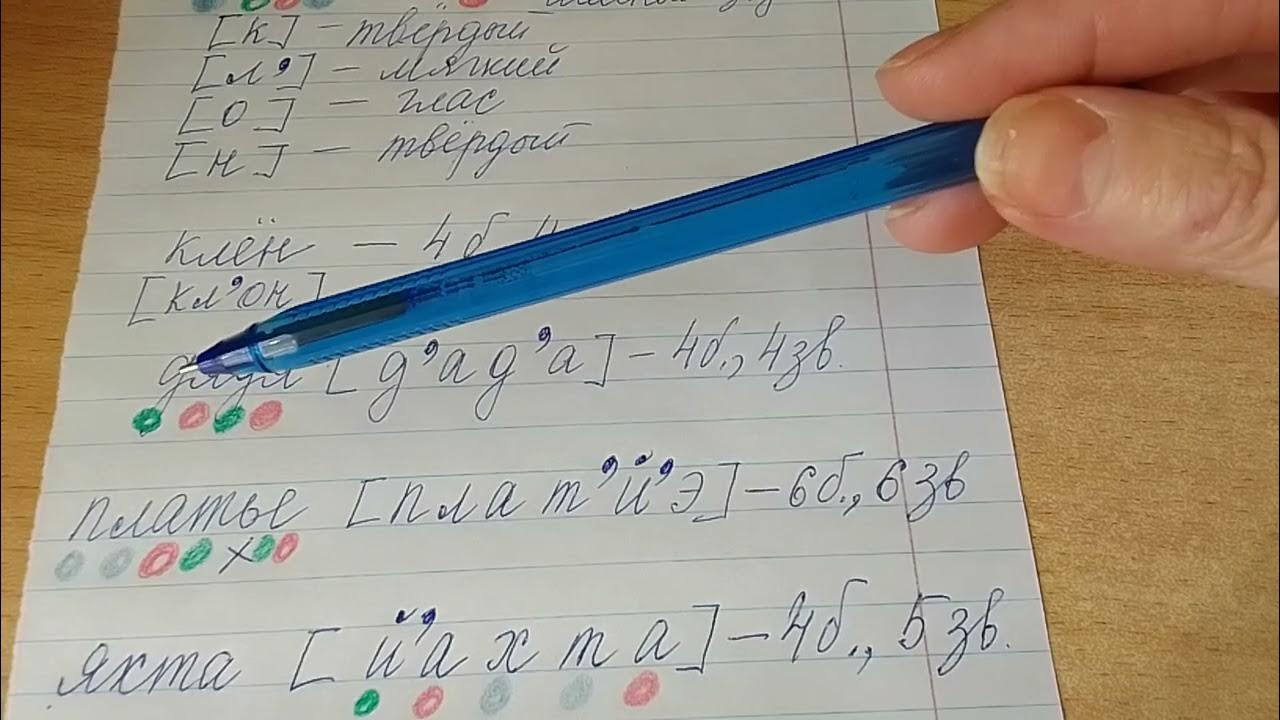 [к] – твёрдый
[л'] – мягкий
[о] – глас
[н] – твёрдый
клён – 4 б
[кл'он]
дядя [д'ад'а] – 4б., 4 зв.
платье [плат'й'э] – 6б., 6 зв
яхта [й'ахта] – 4б., 5 зв.